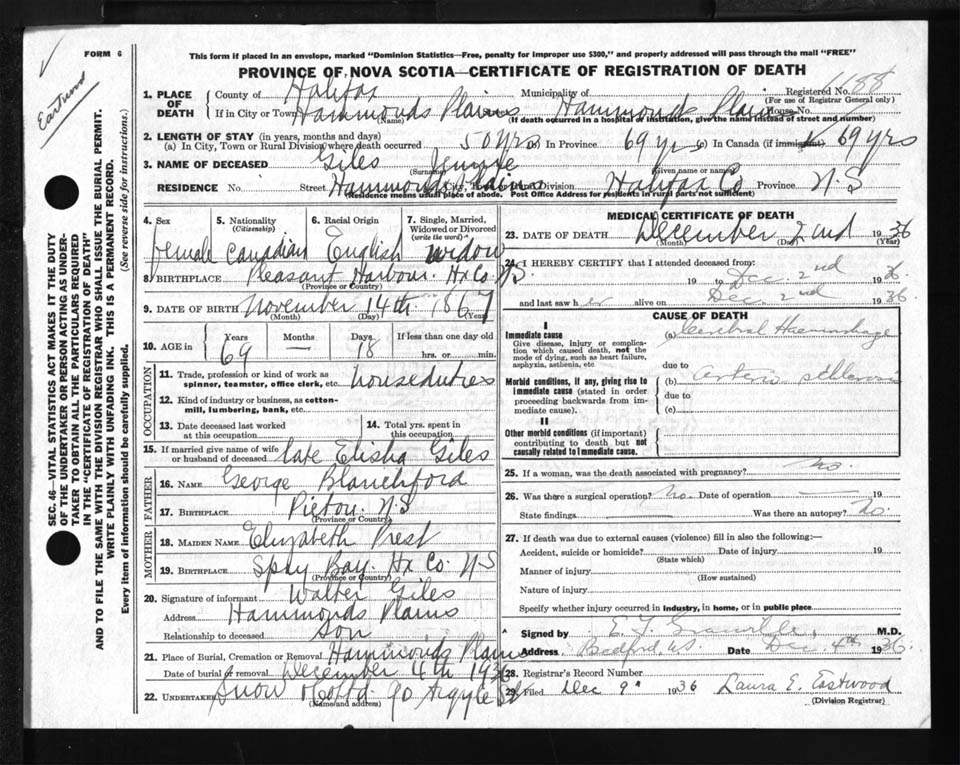 FORM 6
Eastwood
This form if placed in an envelope, marked "Dominion Statistics—Free, penalty for improper use $300," and properly addressed will pass through the mail "FREE"
PROVINCE OF NOVA SCOTIA—CERTIFICATE OF REGISTRATION OF DEATH
SEC. 46—VITAL STATISTICS ACT MAKES IT THE DUTY
OF THE UNDERTAKER OR PERSON ACTING AS UNDER-
TAKER TO OBTAIN ALL THE PARTICULARS REQUIRED
IN THE "CERTIFICATE OF REGISTRATION OF DEATH"
AND TO FILE THE SAME WITH THE DIVISION REGISTRAR WHO SHALL ISSUE THE BURIAL PERMIT.
WRITE PLAINLY WITH UNFADING INK. THIS IS A PERMANENT RECORD.
Every item of information should be carefully supplied. (See reverse side for instructions.)
1. PLACE OF DEATH
County of Halifax Municipality of Registered No. 1188
(For use of Registrar General only)
If in City or Town Hammonds Plains Hammonds Plains House No.
(Name) (If death occurred in a hospital or institution, give the name instead of street and number)
2. LENGTH OF STAY (in years, months and days)
(a) In City, Town or Rural Division where death occurred 50 yrs (b) In Province 69 yrs (c) In Canada (if immigrant) 69 yrs
3. NAME OF DECEASED Giles Jennie
(Surname) (Given name or names)
RESIDENCE No. Street Hammonds Plains City, Town or Rural Division Halifax Co Province N.S
(Residence means usual place of abode. Post Office Address for residents in rural parts not sufficient)
4. Sex 5. Nationality (Citizenship) 6. Racial Origin 7. Single, Married, Widowed or Divorced (write the word)
female Canadian English widow
8. BIRTHPLACE Pleasant Harbour. Hx Co. N.S.
(Province or Country)
9. DATE OF BIRTH November 14th 1867
(Month) (Day) (Year)
10. AGE in Years Months Days If less than one day old
69 — 18 hrs. or min.
OCCUPATION
11. Trade, profession or kind of work as
spinner, teamster, office clerk, etc. houseduties
12. Kind of industry or business, as cotton-
mill, lumbering, bank, etc.
13. Date deceased last worked
at this occupation
14. Total yrs. spent in
this occupation
15. If married give name of wife
or husband of deceased late Elisha Giles
FATHER
16. NAME George Blanchford
17. BIRTHPLACE Pictou. N.S
(Province or Country)
MOTHER
18. MAIDEN NAME Elizabeth Prest
19. BIRTHPLACE Spry Bay. Hx Co. N.S
(Province or Country)
20. Signature of informant Walter Giles
Address Hammonds Plains
Relationship to deceased Son
21. Place of Burial, Cremation or Removal Hammonds Plains
Date of burial or removal December 4th 1936
22. Undertaker Snow & Co Ltd. 90 Argyle St
(Name and address)
MEDICAL CERTIFICATE OF DEATH
23. DATE OF DEATH December 2nd 1936
(Month) (Day) (Year)
24. I HEREBY CERTIFY that I attended deceased from:
19 to Dec. 2nd 1936.
and last saw her alive on Dec. 2nd 1936.
CAUSE OF DEATH
I
Immediate cause
Give disease, injury or complica-
tion which caused death, not the
mode of dying, such as heart failure,
asphyxia, asthenia, etc
(a) Cerebral Haemorrhage
due to
Morbid conditions, if any, giving rise to
immediate cause (stated in order
proceeding backwards from im-
mediate cause).
(b) arterio sclerosis
due to
(c)
II
Other morbid conditions (if important)
contributing to death but not
causally related to immediate cause.
25. If a woman, was the death associated with pregnancy? no.
26. Was there a surgical operation? No. Date of operation — 19
State findings — Was there an autopsy? No.
27. If death was due to external causes (violence) fill in also the following:—
Accident, suicide or homicide? Date of injury 19
(State which)
Manner of injury
(How sustained)
Nature of injury
Specify whether injury occurred in industry, in home, or in public place
Signed by E. F. Granville, M.D.
Address Bedford, N.S. Date Dec. 4th 1936.
28. Registrar's Record Number
29. Filed Dec 9" 1936 Laura E. Eastwood
(Division Registrar)